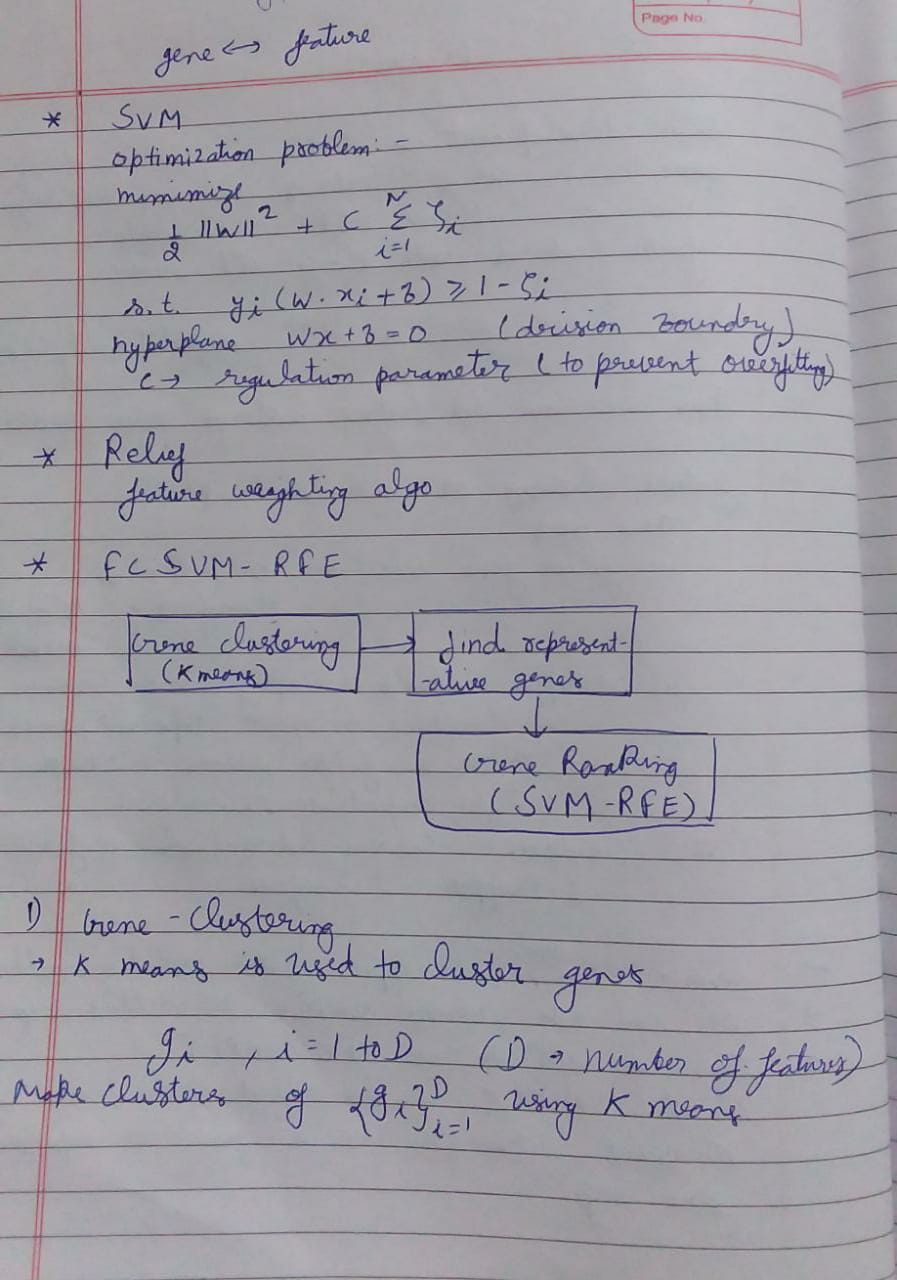 Page No.
gene ↔ feature
* SVM
optimization problem: -
minimize
1/2 ||W||² + C Σ_{i=1}^{N} ξ_i
s.t. y_i (W · x_i + b) ≥ 1 - ξ_i
hyperplane Wx + b = 0 (decision boundry)
C → regulation parameter (to prevent overfitting)
* Relief
feature weaghting algo
* FCSVM-RFE
Gene clustering
(K means)
find represent-
-ative genes
Gene Ranking
(SVM-RFE)
1) Gene - Clustering
→ K means is used to cluster genes
g_i , i = 1 to D (D → number of features)
Make clusters of {g_i}_{i=1}^{D} using K means